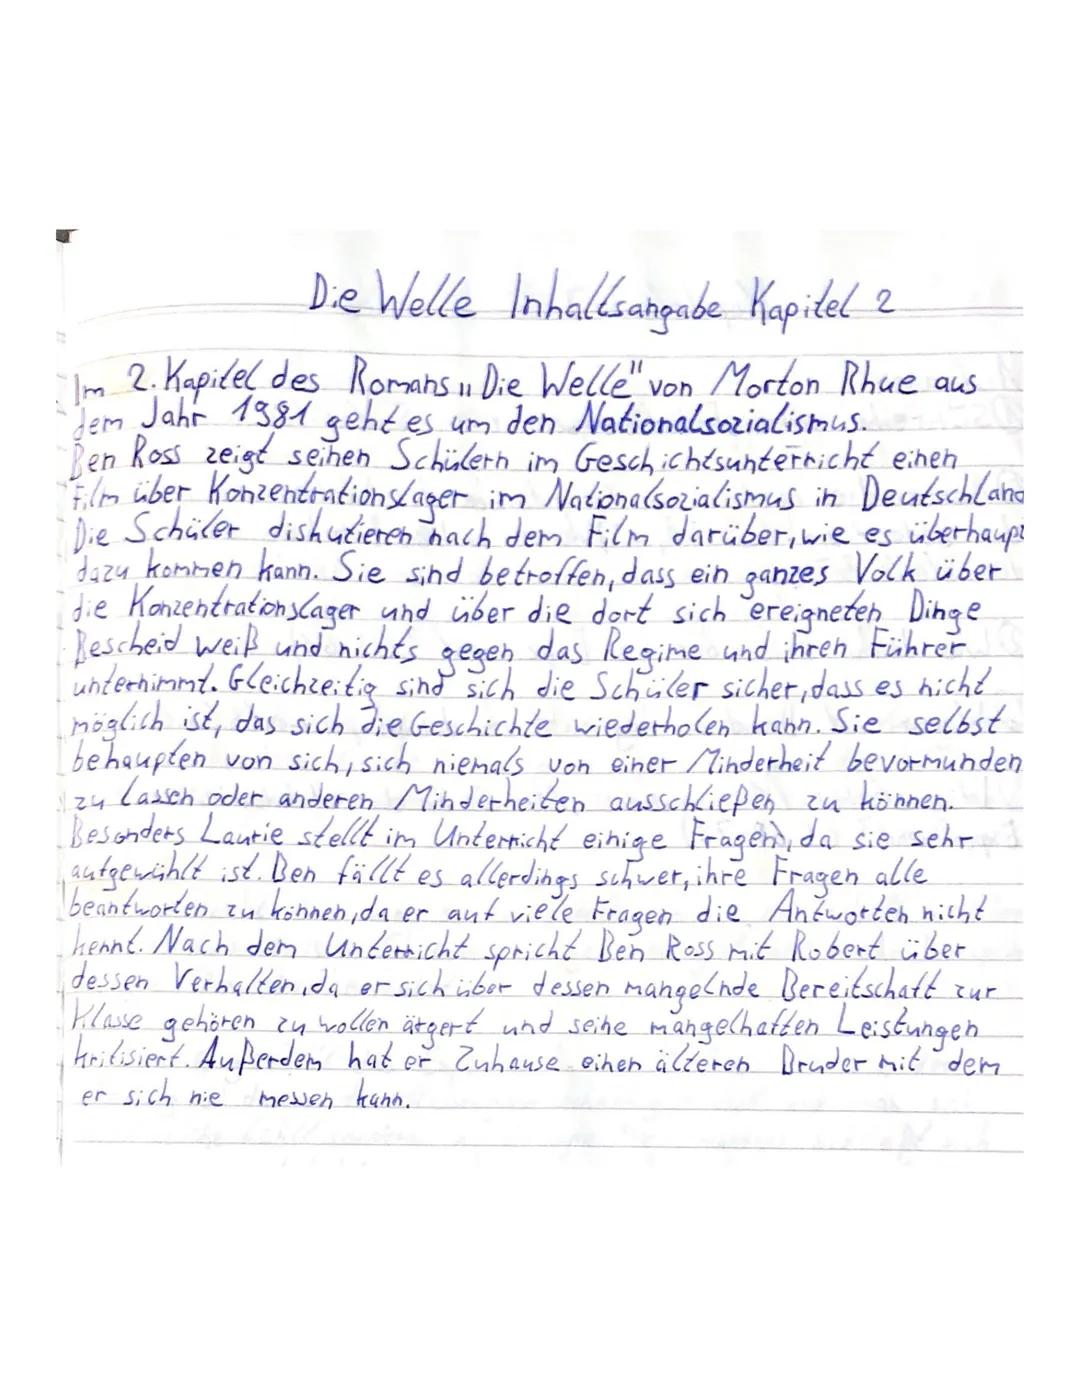 Die Welle Inhaltsangabe Kapitel 2
Im 2. Kapitel des Romans „Die Welle" von Morton Rhue aus
dem Jahr 1981 geht es um den Nationalsozialismus.
Ben Ross zeigt seinen Schülern im Geschichtsunterricht einen
Film über Konzentrationslager im Nationalsozialismus in Deutschland
Die Schüler diskutieren nach dem Film darüber, wie es überhaupt
dazu kommen kann. Sie sind betroffen, dass ein ganzes Volk über
die Konzentrationslager und über die dort sich ereigneten Dinge
Bescheid weiß und nichts gegen das Regime und ihren Führer
unternimmt. Gleichzeitig sind sich die Schüler sicher, dass es nicht
möglich ist, das sich die Geschichte wiederholen kann. Sie selbst
behaupten von sich, sich niemals von einer Minderheit bevormunden
zu lassen oder anderen Minderheiten ausschließen zu können.
Besonders Laurie stellt im Unterricht einige Fragen, da sie sehr
aufgewühlt ist. Ben fällt es allerdings schwer, ihre Fragen alle
beantworten zu können, da er auf viele Fragen die Antworten nicht
kennt. Nach dem Unterricht spricht Ben Ross mit Robert über
dessen Verhalten, da er sich über dessen mangelnde Bereitschaft zur
Klasse gehören zu wollen ärgert und seine mangelhaften Leistungen
kritisiert. Außerdem hat er Zuhause einen älteren Bruder mit dem
er sich nie messen kann.